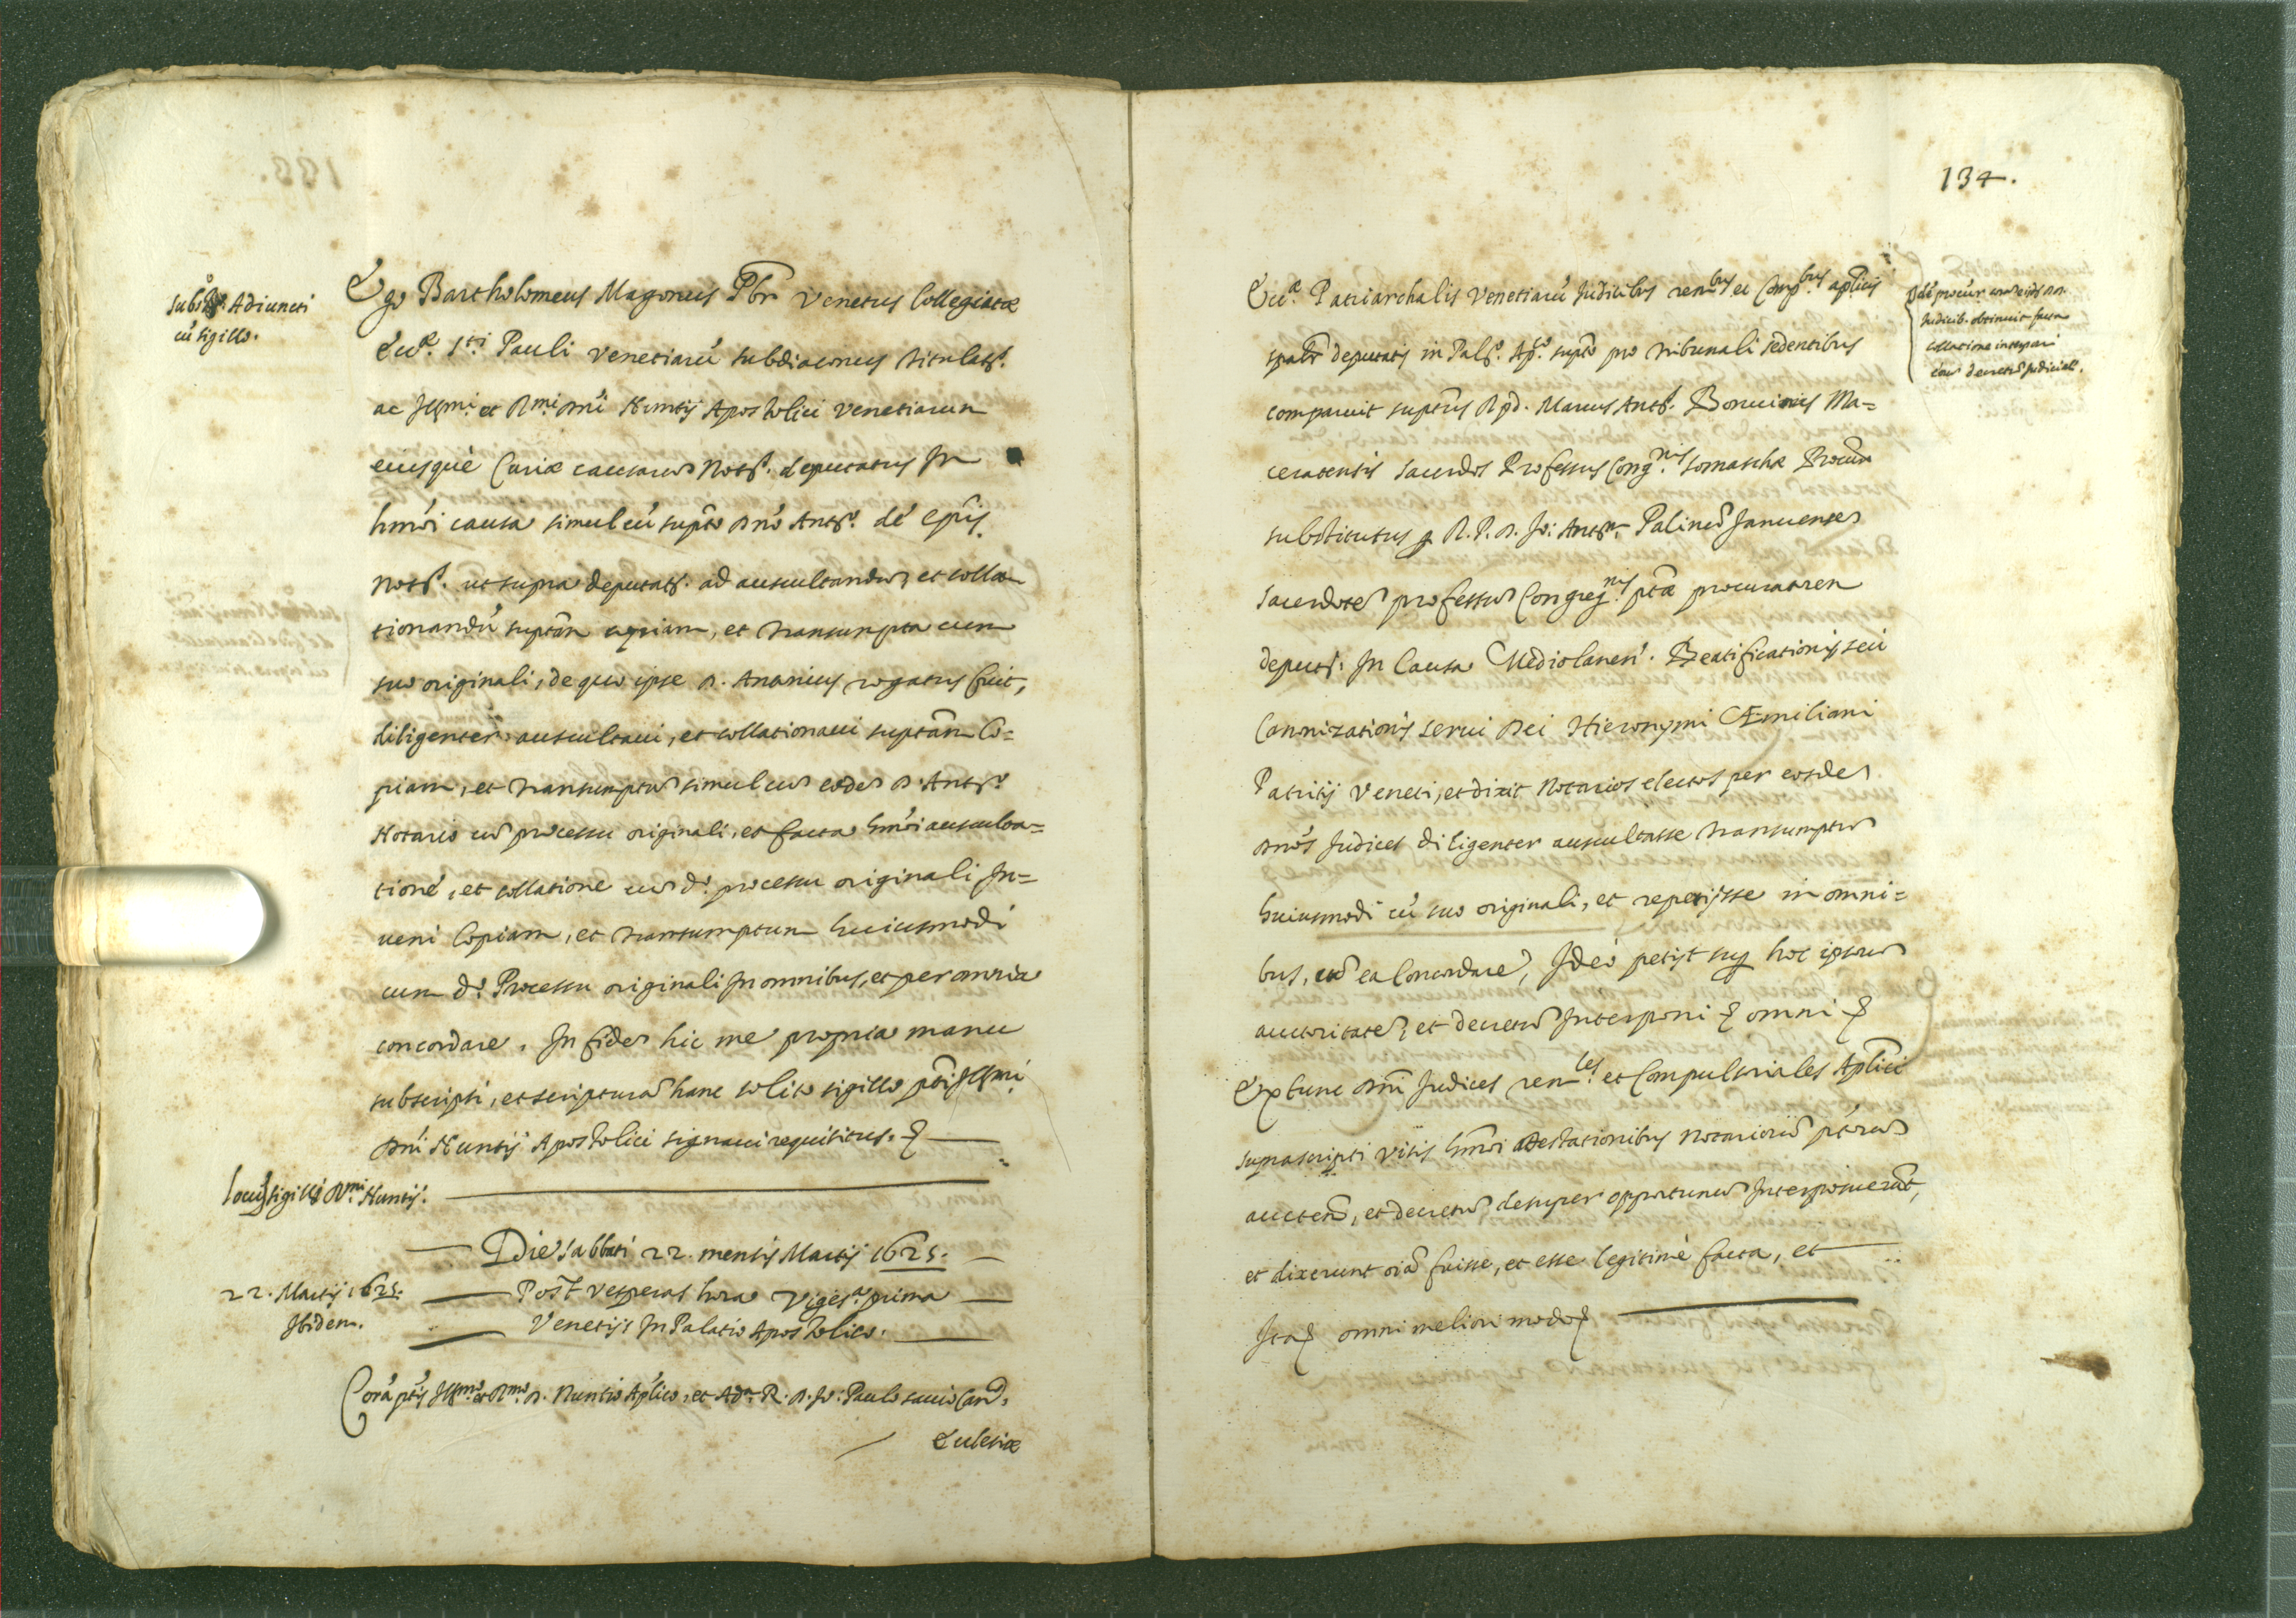 Subsc. Adiuncti
cū sigillo.
Ego Bartholomeus Magonus Pbr Venetus Collegiatæ
Eccl.æ S.ti Pauli Venetiarū subdiaconus titulat.s
ac Ill.mi et R.mi Dn̄i Nuntij Apostolici Venetiarum
eiusquè Curiæ causarum Not.s deputatus In
hm̄oi causa simul cū sup̄to Dn̄o Ant.o dè Ep̄is.
Not.s ut supra deputat.s ad auscultandum, et colla
tionandū sup̄tam copiam, et transumpta cum
suo originali, de quo ipse D. Antonius rogatus fuit,
diligenter auscultaui, et collationaui sup̄tam Co=
piam, et transumptum simul cum eodem D. Ant.o
Notario cum processu originali, et facta hm̄oi ausculta=
tione, et collatione cum d.o processu originali In=
ueni Copiam, et transumptum huiusmodi
cum d.o Processu originali In omnibus, et per omnia
concordare. In fidem hic me propria manu
subscripsi, et scripturam hanc solito sigillo p̄ti Ill.mi
Dn̄i Nuntij Apostolici signaui requisitus.
Locus sigilli R.mi Nuntij.
Die Sabbati 22. mensis Martij 1625.
22. Martij 1625.
Ibidem.
Post vesperas hora Viges.a prima
Venetijs In Palatio Apostolico.
Corā p̄tis Ill.mo et R.mo D. Nuntio Ap̄lico, et Ad.m R. D. Io: Paulo sauio Can.
Ecclesiæ
134.
Eccl.æ Patriarchalis Venetiarū Iudicibus rem.bus et Comp.bus ap̄licis
sp̄alr deputatis in Pal.o Ap.co sup̄to pro tribunali sedentibus
comparuit sup̄tus R.p.d. Marcus Ant.s Ma=
ceratensis sacerdos Professus Cong.nis somaschæ
substitutus R.P.D. Io: Ant.m Palinum Ianuensem
sacerdotem professum Congreg.nis p̄tæ procuratorem
deput.m In Causa Mediolanen. Beatificationis, seu
Canonizationis serui Dei Hieronymi Æmiliani
Patritij Veneti, et dixit Notarios electos per eosdem
Dn̄os Iudices diligenter auscultasse transumptum
huiusmodi cū suo originali, et reperijsse in omni=
bus, cum ea Concordare, Ideò petijt sup. hoc ipsorum
auctoritatem, et decretum Interponi omni
Ex tunc Dn̄i Iudices rem.les et Compulsoriales Ap̄lici
suprascripti visis hm̄oi attestationibus Notariorum p̄torum
auctem, et decretum desuper opportunum Interposuerunt,
et dixerunt oīa fuisse, et esse legitimè facta, et
Ita omni meliori modo
Iudicib. obtinuit super
collatione interponi
eorum decretum Iudiciale.